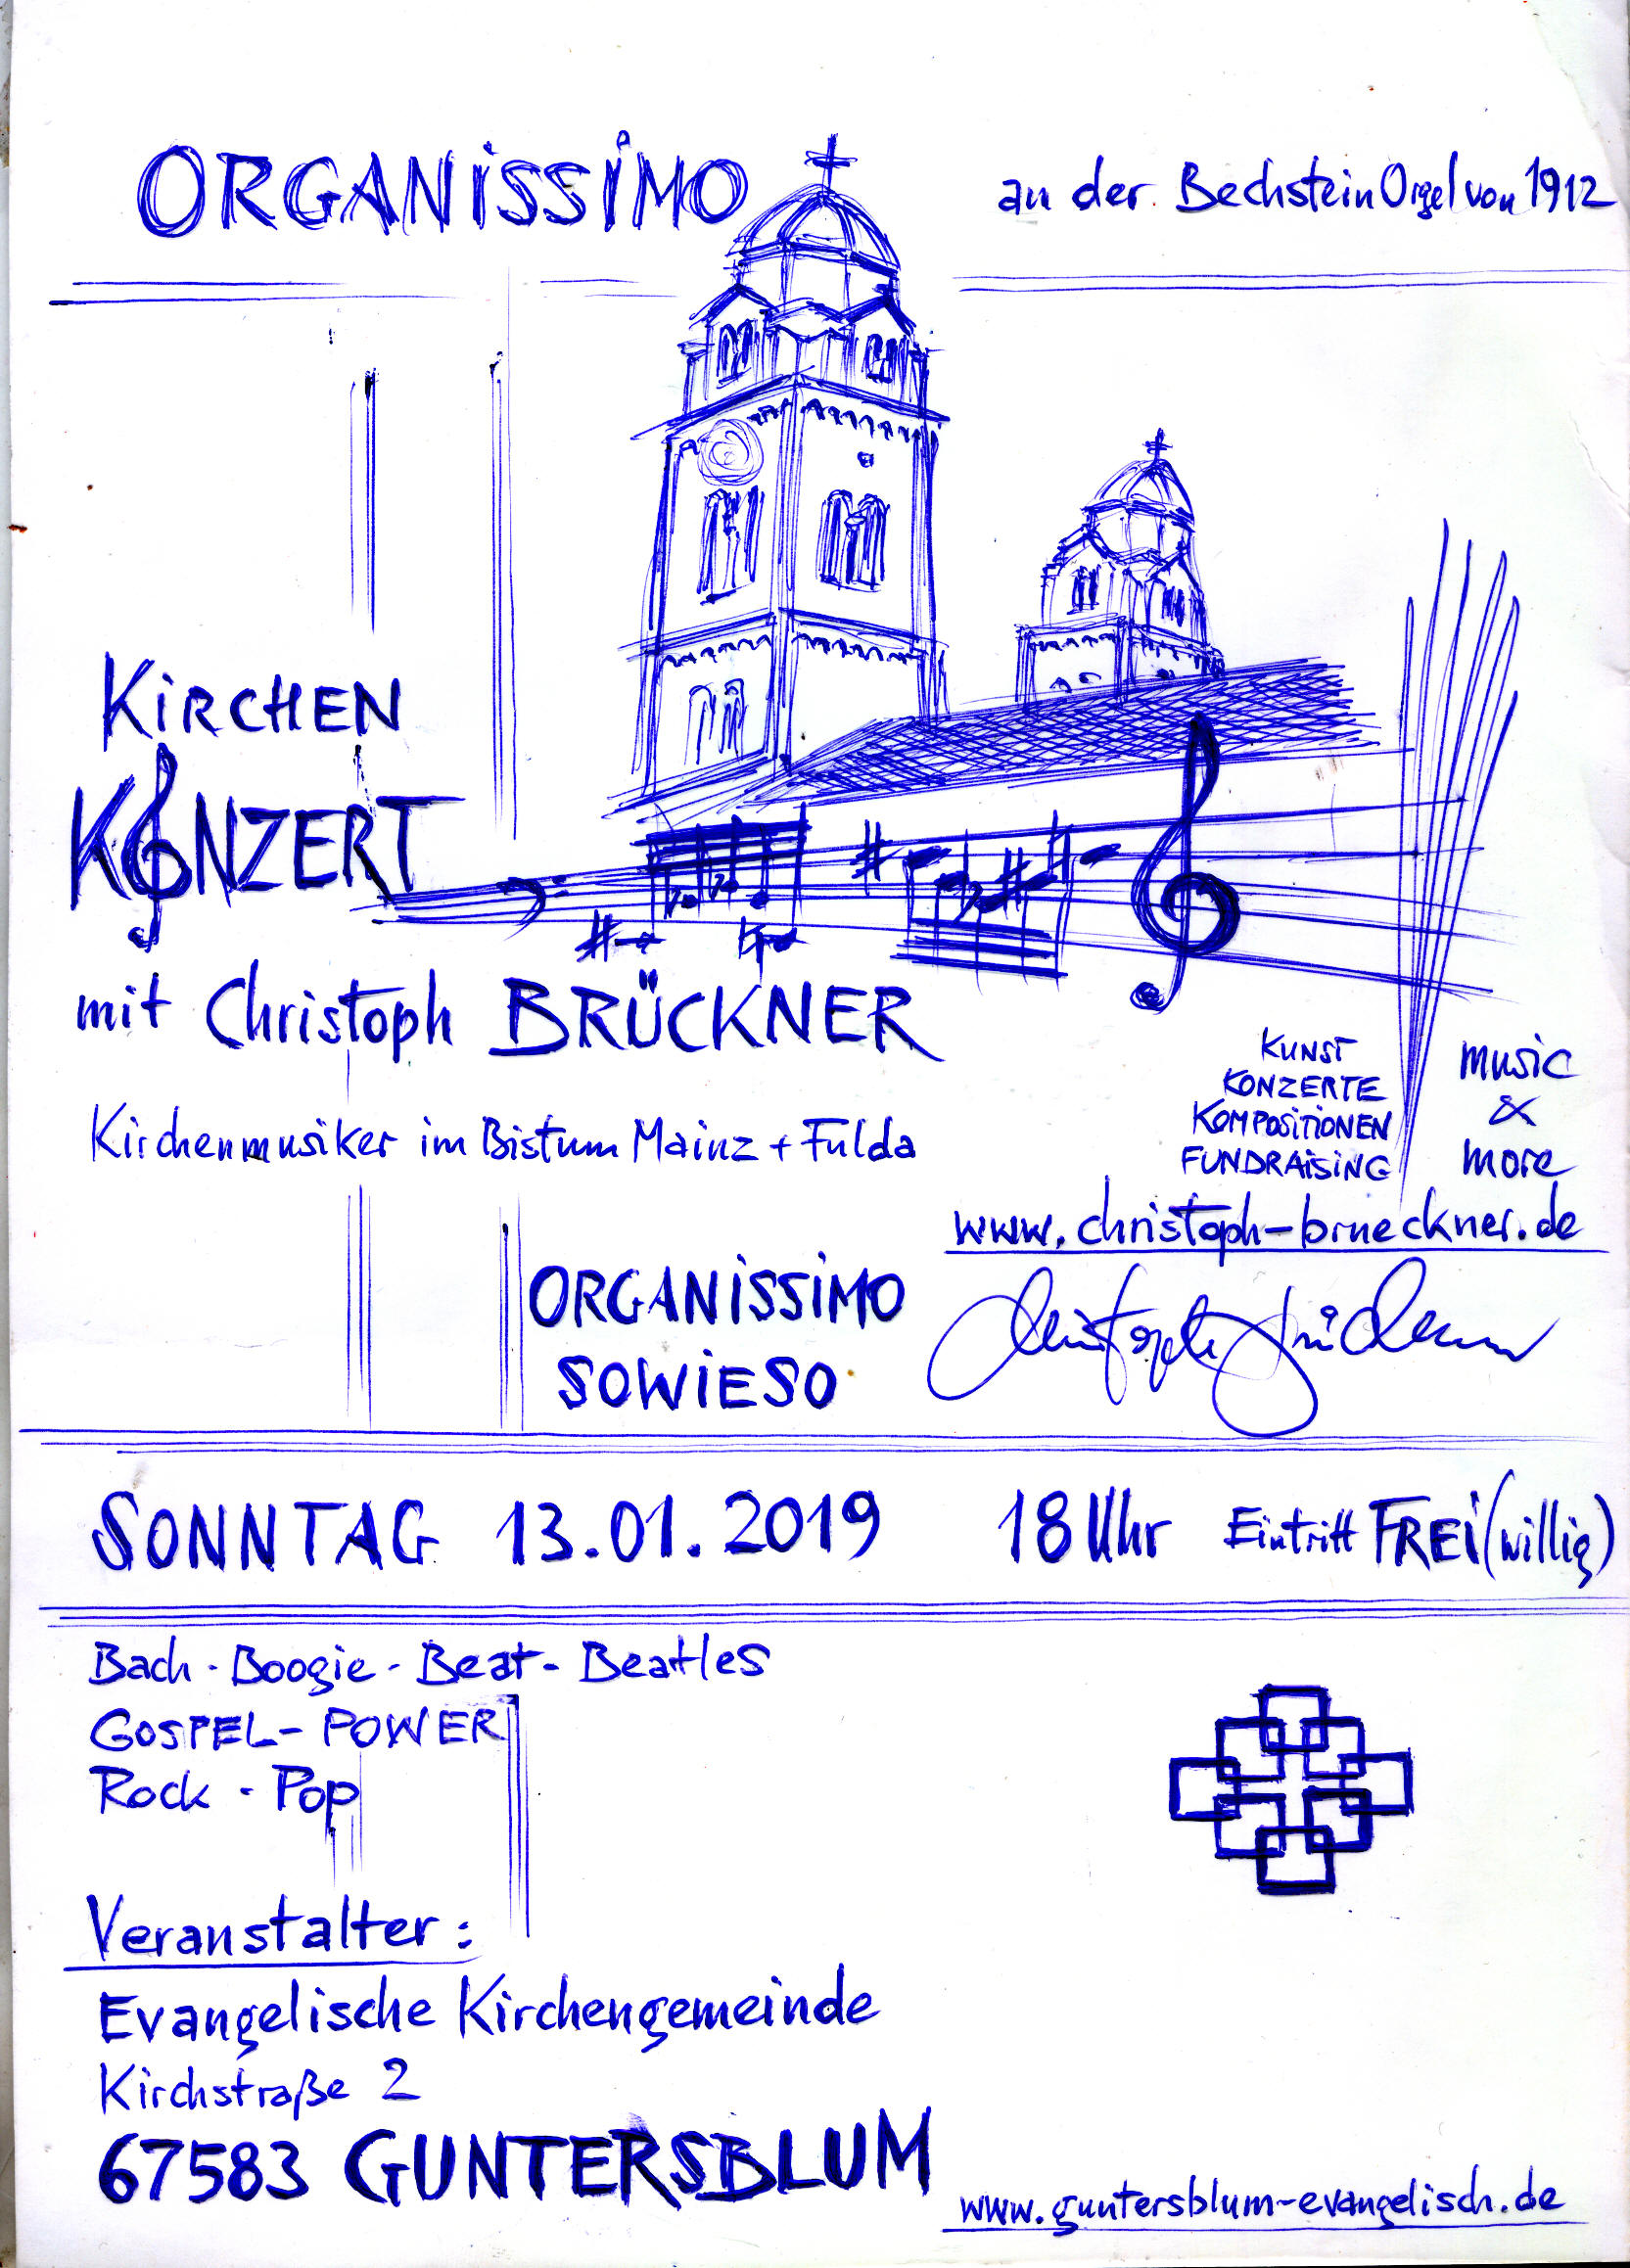 ORGANiSSiMO
an der Bechstein Orgel von 1912
KiRCHEN
KONZERT
mit Christoph BRÜCKNER
Kirchenmusiker im Bistum Mainz + Fulda
KUNST
KONZERTE
KOMPOSiTiONEN
FUNDRAiSiNG
music
&
more
www.christoph-brueckner.de
ORGANiSSiMO
SOWiESO
Christoph Brückner
SONNTAG 13.01.2019 18 Uhr Eintritt FREi(willig)
Bach - Boogie - Beat - Beatles
GOSPEL - POWER
Rock - Pop
Veranstalter:
Evangelische Kirchengemeinde
Kirchstraße 2
67583 GUNTERSBLUM
www.guntersblum-evangelisch.de